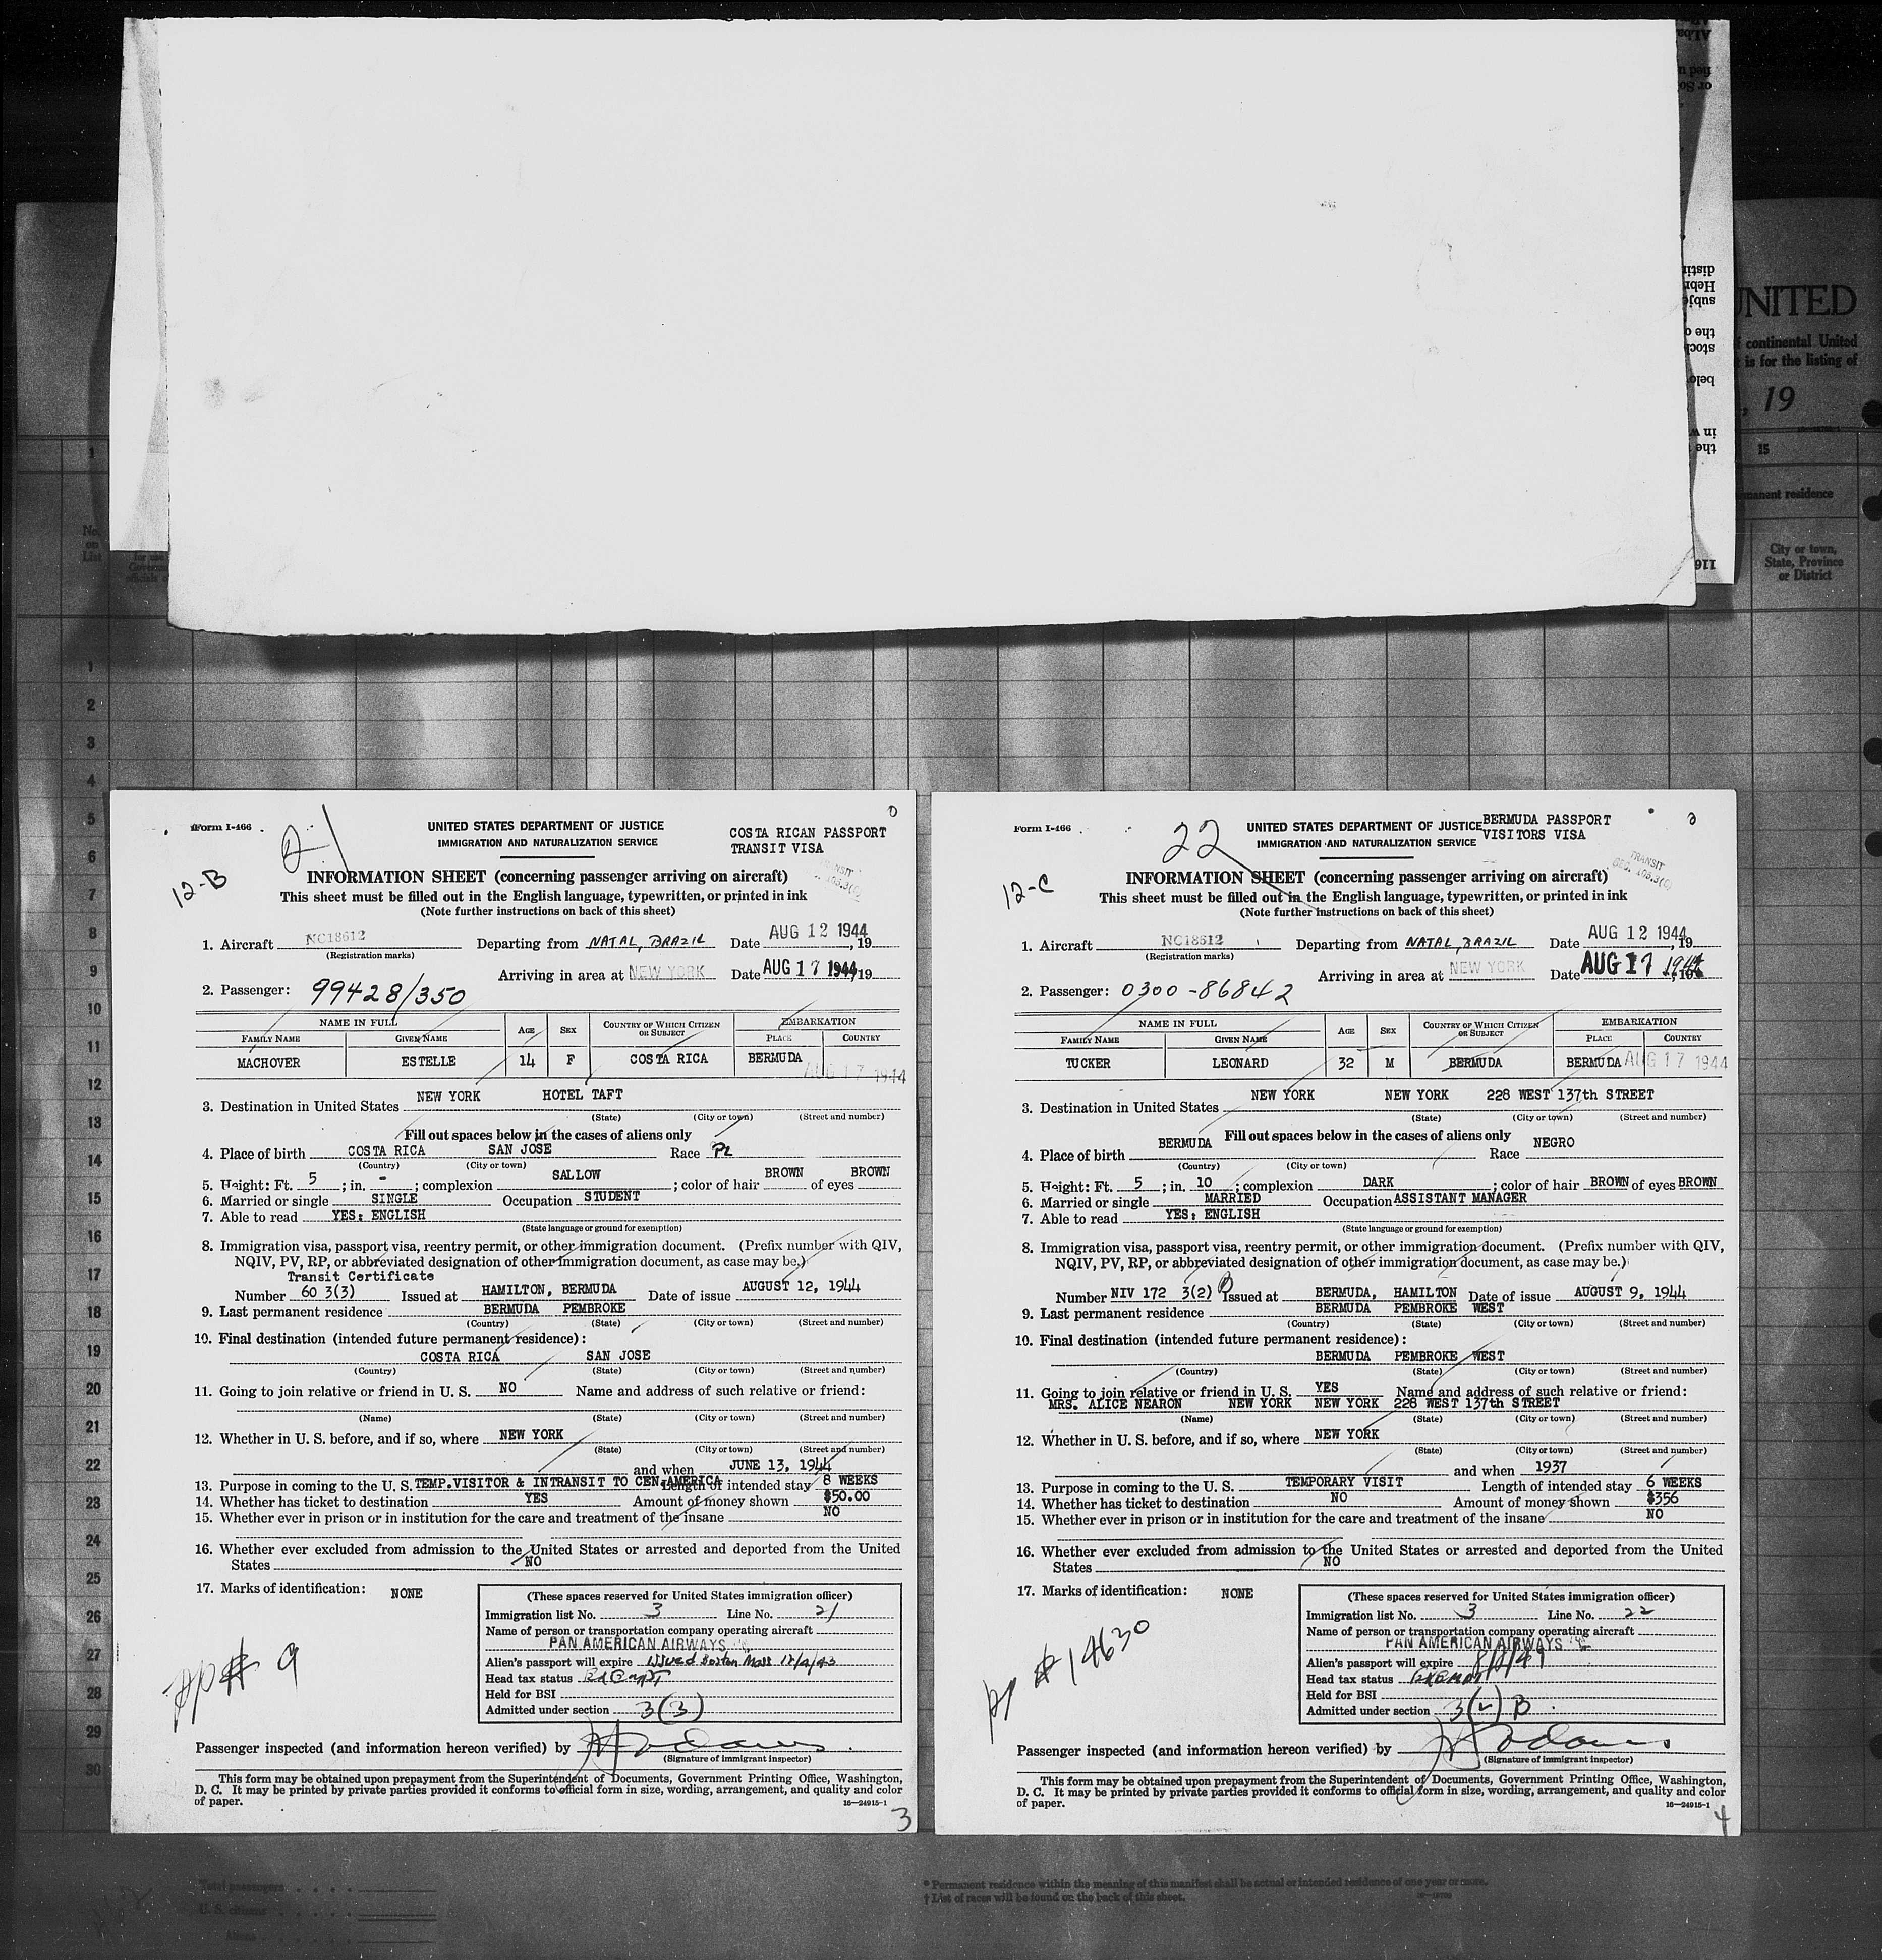 UNITED
continental United
is for the listing of
, 19
15
residence
City or town,
State, Province
or District
No.
on
List
1
1
2
3
4
5
6
7
8
9
10
11
12
13
14
15
16
17
18
19
20
21
22
23
24
25
26
27
28
29
30
Form I-466
21
12-B
UNITED STATES DEPARTMENT OF JUSTICE
IMMIGRATION AND NATURALIZATION SERVICE
COSTA RICAN PASSPORT
TRANSIT VISA
INFORMATION SHEET (concerning passenger arriving on aircraft)
This sheet must be filled out in the English language, typewritten, or printed in ink
(Note further instructions on back of this sheet)
1. Aircraft NC18612 Departing from NATAL, BRAZIL Date AUG 12 1944, 19
(Registration marks)
Arriving in area at NEW YORK Date AUG 17 1944, 19
2. Passenger: 99428/350
NAME IN FULL AGE SEX COUNTRY OF WHICH CITIZEN OR SUBJECT EMBARKATION
FAMILY NAME GIVEN NAME PLACE COUNTRY
MACHOVER ESTELLE 14 F COSTA RICA BERMUDA
AUG 17 1944
3. Destination in United States NEW YORK HOTEL TAFT
(State) (City or town) (Street and number)
Fill out spaces below in the cases of aliens only
4. Place of birth COSTA RICA SAN JOSE Race PL
(Country) (City or town)
5. Height: Ft. 5; in. -; complexion SALLOW; color of hair BROWN of eyes BROWN
6. Married or single SINGLE Occupation STUDENT
7. Able to read YES: ENGLISH
(State language or ground for exemption)
8. Immigration visa, passport visa, reentry permit, or other immigration document. (Prefix number with QIV,
NQIV, PV, RP, or abbreviated designation of other immigration document, as case may be.)
Transit Certificate
Number 60 3(3) Issued at HAMILTON, BERMUDA Date of issue AUGUST 12, 1944
9. Last permanent residence BERMUDA PEMBROKE
(Country) (State) (City or town) (Street and number)
10. Final destination (intended future permanent residence):
COSTA RICA SAN JOSE
(Country) (State) (City or town) (Street and number)
11. Going to join relative or friend in U. S. NO Name and address of such relative or friend:
(Name) (State) (City or town) (Street and number)
12. Whether in U. S. before, and if so, where NEW YORK
(State) (City or town) (Street and number)
and when JUNE 13, 1944
13. Purpose in coming to the U. S. TEMP.VISITOR & INTRANSIT TO CEN.AMERICA Length of intended stay 8 WEEKS
14. Whether has ticket to destination YES Amount of money shown $50.00
15. Whether ever in prison or in institution for the care and treatment of the insane NO
16. Whether ever excluded from admission to the United States or arrested and deported from the United
States NO
17. Marks of identification: NONE
(These spaces reserved for United States immigration officer)
Immigration list No. 3 Line No. 21
Name of person or transportation company operating aircraft
PAN AMERICAN AIRWAYS
Alien's passport will expire issued Boston Mass 12/4/43
Head tax status Exempt
Held for BSI
Admitted under section 3(3)
pp# 9
Passenger inspected (and information hereon verified) by
(Signature of immigrant inspector)
This form may be obtained upon prepayment from the Superintendent of Documents, Government Printing Office, Washington,
D. C. It may be printed by private parties provided it conforms to official form in size, wording, arrangement, and quality and color
of paper.
16—24915-1
3
Form I-466
22
12-C
UNITED STATES DEPARTMENT OF JUSTICE
IMMIGRATION AND NATURALIZATION SERVICE
BERMUDA PASSPORT
VISITORS VISA
TRANSIT
INFORMATION SHEET (concerning passenger arriving on aircraft)
This sheet must be filled out in the English language, typewritten, or printed in ink
(Note further instructions on back of this sheet)
1. Aircraft NC18612 Departing from NATAL, BRAZIL Date AUG 12 1944, 19
(Registration marks)
Arriving in area at NEW YORK Date AUG 17 1944
2. Passenger: 0300-86842
NAME IN FULL AGE SEX COUNTRY OF WHICH CITIZEN OR SUBJECT EMBARKATION
FAMILY NAME GIVEN NAME PLACE COUNTRY
TUCKER LEONARD 32 M BERMUDA BERMUDA AUG 17 1944
3. Destination in United States NEW YORK NEW YORK 228 WEST 137th STREET
(State) (City or town) (Street and number)
Fill out spaces below in the cases of aliens only
4. Place of birth BERMUDA Race NEGRO
(Country) (City or town)
5. Height: Ft. 5; in. 10; complexion DARK; color of hair BROWN of eyes BROWN
6. Married or single MARRIED Occupation ASSISTANT MANAGER
7. Able to read YES: ENGLISH
(State language or ground for exemption)
8. Immigration visa, passport visa, reentry permit, or other immigration document. (Prefix number with QIV,
NQIV, PV, RP, or abbreviated designation of other immigration document, as case may be.)
Number NIV 172 3(2) B Issued at BERMUDA, HAMILTON Date of issue AUGUST 9, 1944
9. Last permanent residence BERMUDA PEMBROKE WEST
(Country) (State) (City or town) (Street and number)
10. Final destination (intended future permanent residence):
BERMUDA PEMBROKE WEST
(Country) (State) (City or town) (Street and number)
11. Going to join relative or friend in U. S. YES Name and address of such relative or friend:
MRS. ALICE NEARON NEW YORK NEW YORK 228 WEST 137th STREET
(Name) (State) (City or town) (Street and number)
12. Whether in U. S. before, and if so, where NEW YORK
(State) (City or town) (Street and number)
and when 1937
13. Purpose in coming to the U. S. TEMPORARY VISIT Length of intended stay 6 WEEKS
14. Whether has ticket to destination NO Amount of money shown $356
15. Whether ever in prison or in institution for the care and treatment of the insane NO
16. Whether ever excluded from admission to the United States or arrested and deported from the United
States NO
17. Marks of identification: NONE
(These spaces reserved for United States immigration officer)
Immigration list No. 3 Line No. 22
Name of person or transportation company operating aircraft
PAN AMERICAN AIRWAYS
Alien's passport will expire 8/2/49
Head tax status Exempt
Held for BSI
Admitted under section 3(2) B.
pp #14630
Passenger inspected (and information hereon verified) by
(Signature of immigrant inspector)
This form may be obtained upon prepayment from the Superintendent of Documents, Government Printing Office, Washington,
D. C. It may be printed by private parties provided it conforms to official form in size, wording, arrangement, and quality and color
of paper.
16—24915-1
4
Total passengers
U. S. citizens
Aliens
* Permanent residence within the meaning of this manifest shall be actual or intended residence of one year or more.
† List of races will be found on the back of this sheet.